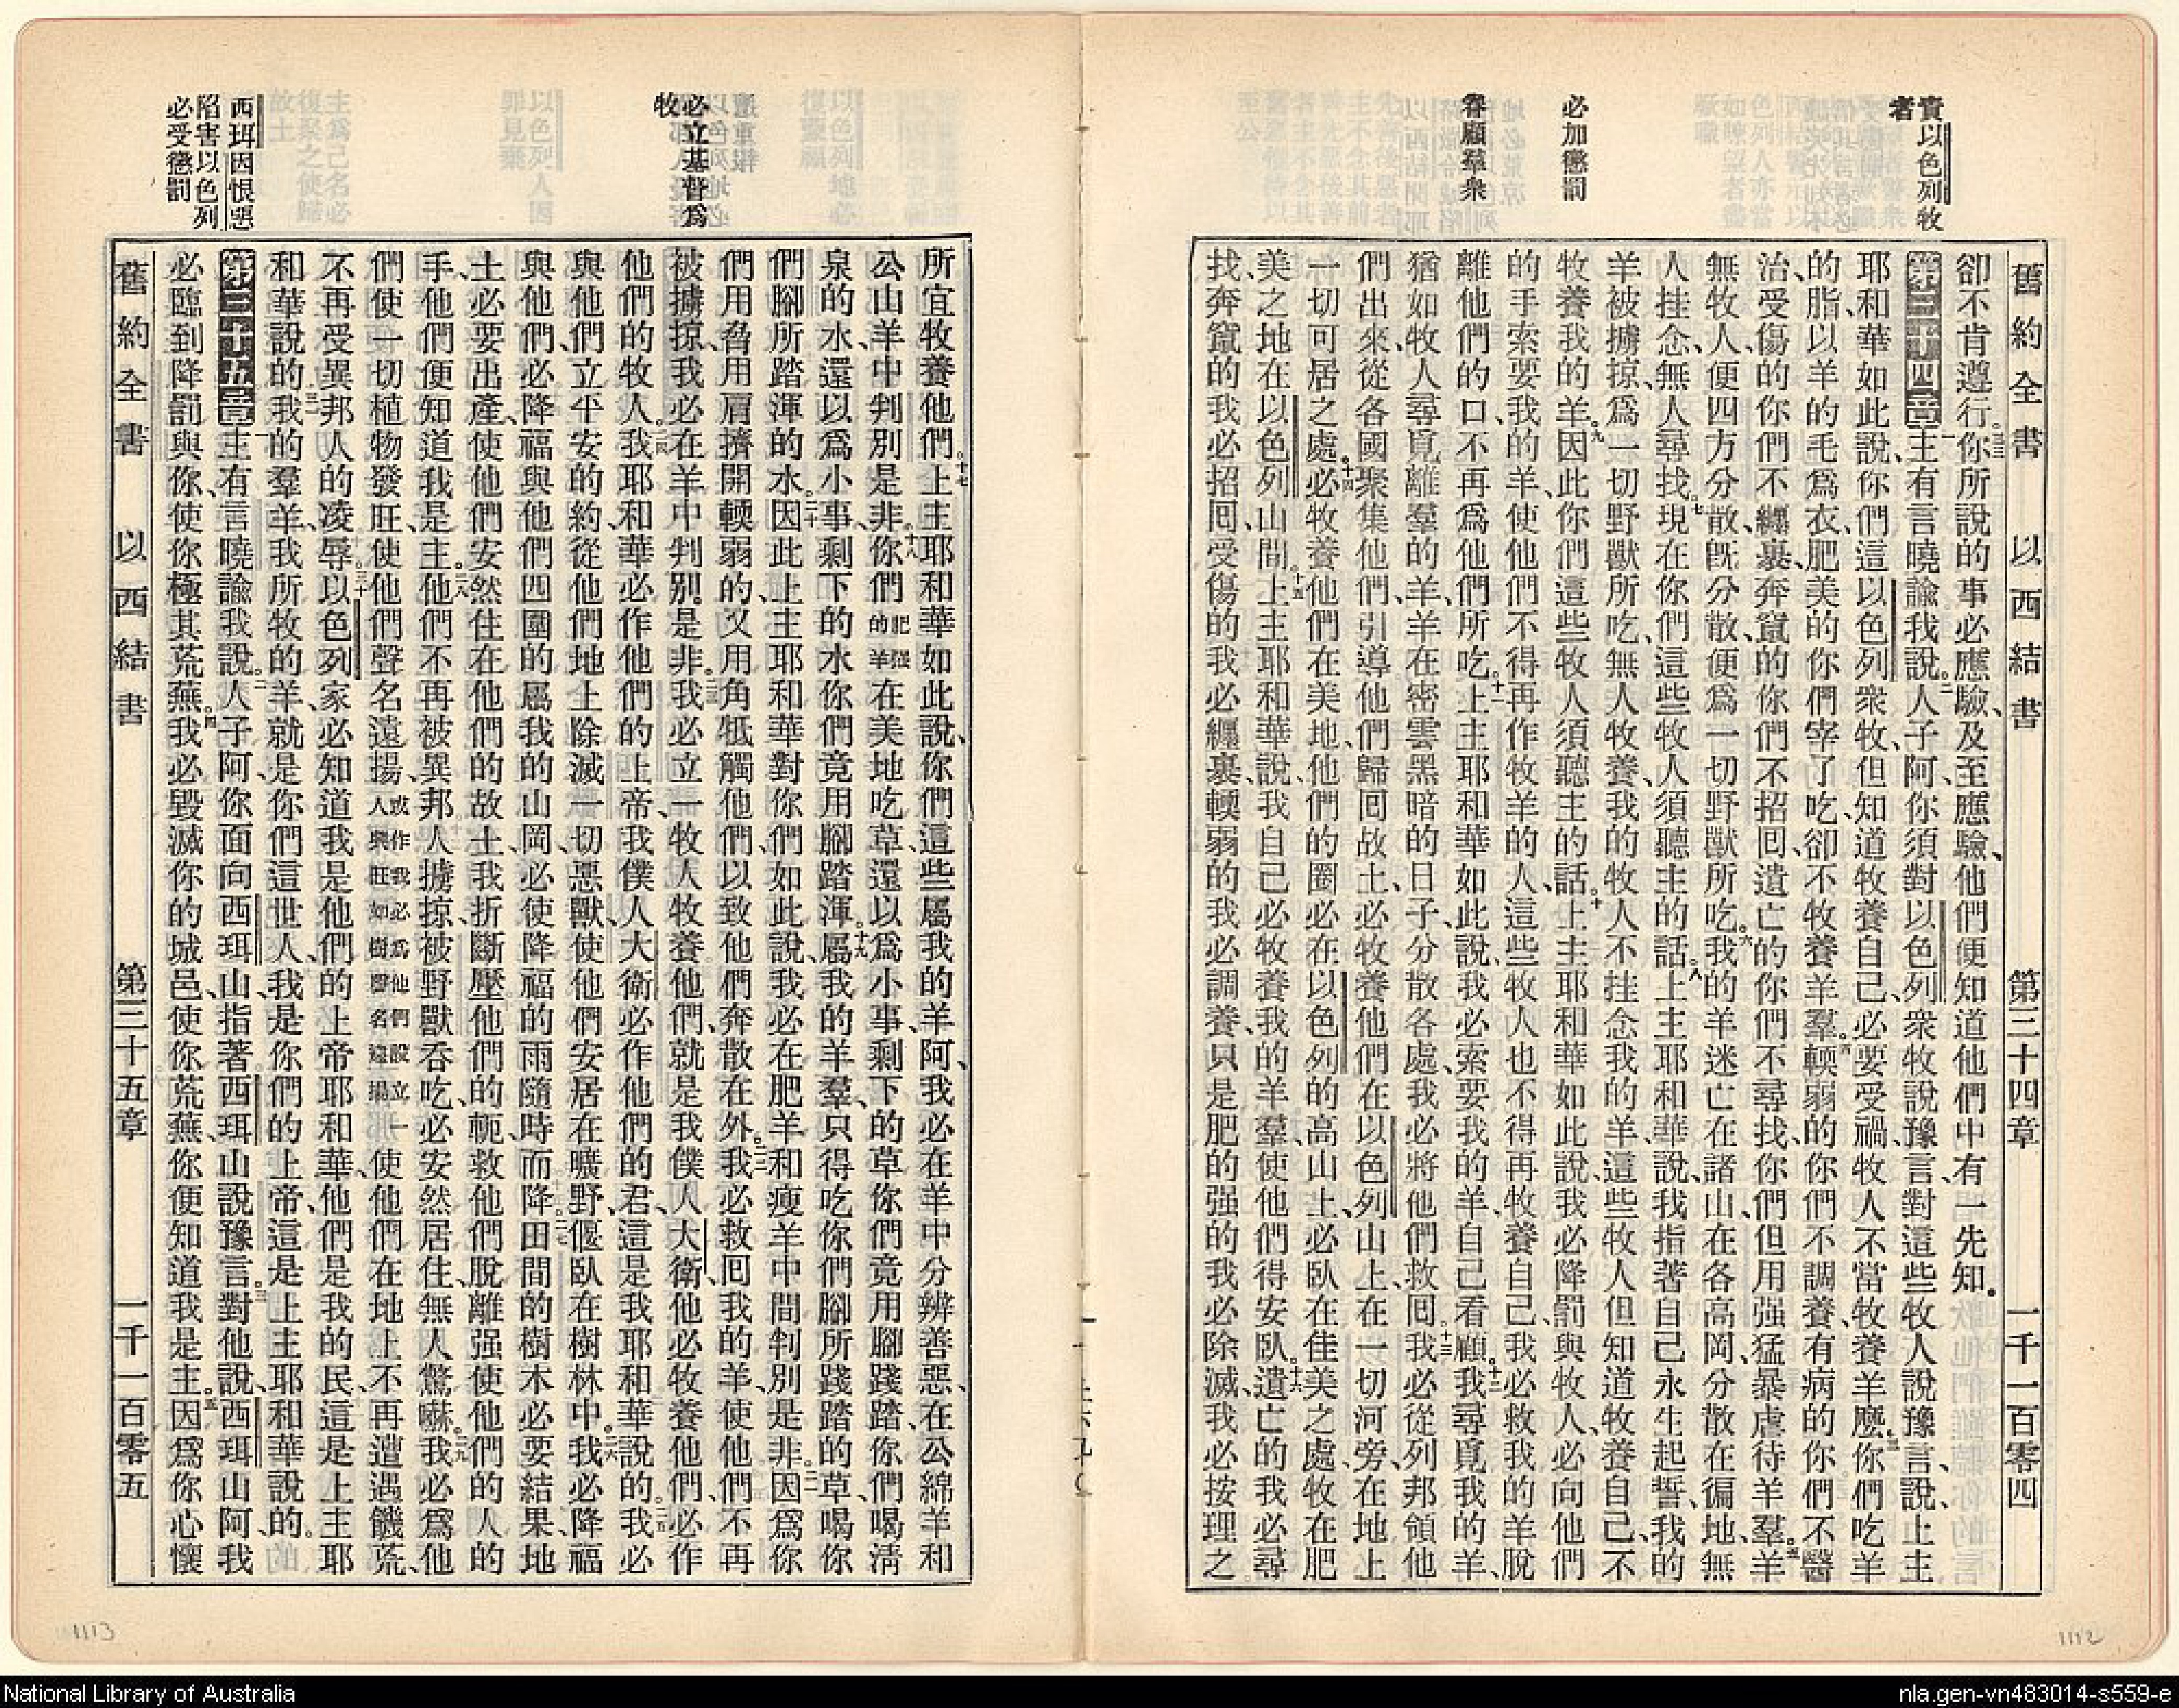 責以色列牧
者
必加懲罰
眷顧羣衆
舊約全書 以西結書 第三十四章 一千一百零四
卻不肯遵行。三三你所說的事必應驗、及至應驗、他們便知道他們中有一先知。
第三十四章 一主有言曉諭我說。二人子阿、你須對以色列衆牧說豫言、對這些牧人說豫言、說、上主
耶和華如此說、你們這以色列衆牧、但知道牧養自己、必要受禍、牧人不當牧養羊麼。三你們吃羊
的脂、以羊的毛爲衣、肥美的你們宰了吃、卻不牧養羊羣。四輭弱的你們不調養、有病的你們不醫
治、受傷的你們不纏裹、奔竄的你們不招囘、遺亡的你們不尋找、你們但用强猛暴虐待羊羣。五羊
無牧人、便四方分散、旣分散、便爲一切野獸所吃。六我的羊迷亡在諸山、在各高岡、分散在徧地、無
人挂念、無人尋找。七現在你們這些牧人、須聽主的話。八上主耶和華說、我指著自己永生起誓、我的
羊被擄掠、爲一切野獸所吃、無人牧養、我的牧人不挂念我的羊、這些牧人但知道牧養自己、不
牧養我的羊。九因此你們這些牧人須聽主的話。十上主耶和華如此說、我必降罰與牧人、必向他們
的手索要我的羊、使他們不得再作牧羊的人、這些牧人也不得再牧養自己、我必救我的羊脫
離他們的口、不再爲他們所吃。十一上主耶和華如此說、我必索要我的羊、自己看顧。十二我尋覓我的羊、
猶如牧人尋覓離羣的羊、羊在密雲黑暗的日子、分散各處、我必將他們救囘。十三我必從列邦領他
們出來、從各國聚集他們、引導他們歸囘故土、必牧養他們在以色列山上、在一切河旁、在地上
一切可居之處。十四必牧養他們在美地、他們的圈必在以色列的高山上、必臥在佳美之處、牧在肥
美之地、在以色列山間。十五上主耶和華說、我自己必牧養我的羊羣、使他們得安臥。十六遺亡的我必尋
找、奔竄的我必招囘、受傷的我必纏裹、輭弱的我必調養、只是肥的强的我必除滅、我必按理之
必立基督爲
牧
西珥因恨惡
陷害以色列
必受懲罰
所宜牧養他們。十七上主耶和華如此說、你們這些屬我的羊阿、我必在羊中分辨善惡、在公綿羊和
公山羊中判別是非。十八你們肥强的羊在美地吃草、還以爲小事、剩下的草你們竟用腳踐踏、你們喝淸
泉的水、還以爲小事、剩下的水你們竟用腳踏渾。十九屬我的羊羣、只得吃你們腳所踐踏的草、喝你
們腳所踏渾的水。二十因此上主耶和華對你們如此說、我必在肥羊和瘦羊中間判別是非。二一因爲你
們用脅用肩擠開輭弱的、又用角牴觸他們、以致他們奔散在外。二二我必救囘我的羊、使他們不再
被擄掠、我必在羊中判別是非。二三我必立一牧人牧養他們、就是我僕人大衛、他必牧養他們、必作
他們的牧人。二四我耶和華必作他們的上帝、我僕人大衛必作他們的君、這是我耶和華說的。二五我必
與他們立平安的約、從他們地上除滅一切惡獸、使他們安居在曠野、偃臥在樹林中。二六我必降福
與他們、必降福與他們四圍的屬我的山岡、必使降福的雨隨時而降。二七田間的樹木必要結果、地
土必要出產、使他們安然住在他們的故土、我折斷壓他們的軛、救他們脫離强使他們的人的
手、他們便知道我是主。二八他們不再被異邦人擄掠、被野獸吞吃、必安然居住、無人驚嚇。二九我必爲他
們使一切植物發旺、使他們聲名遠揚或作我必爲他們設立一人興旺如樹聲名遠揚使他們在地上不再遭遇饑荒、
不再受異邦人的凌辱。三十以色列家必知道我是他們的上帝耶和華、他們是我的民、這是上主耶
和華說的。三一我的羣羊、我所牧的羊、就是你們這世人、我是你們的上帝、這是上主耶和華說的。
第三十五章 一主有言曉諭我說。二人子阿、你面向西珥山、指著西珥山說豫言。三對他說、西珥山阿、我
必臨到降罰與你、使你極其荒蕪。四我必毀滅你的城邑、使你荒蕪、你便知道我是主。五因爲你心懷
舊約全書 以西結書 第三十五章 一千一百零五
1113
1112
National Library of Australia
nla.gen-vn483014-s559-e